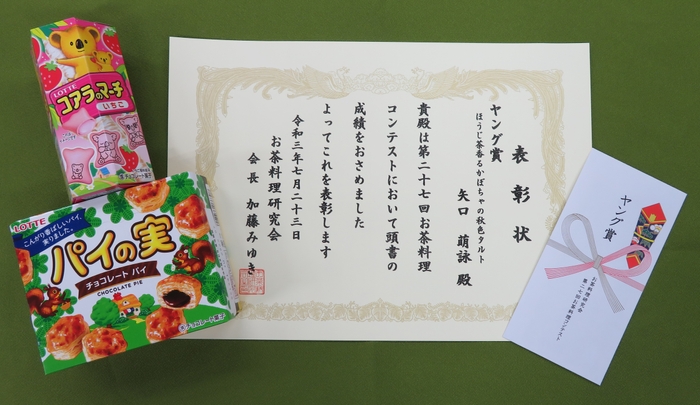 LOTTE
コアラのマーチ
いちご
LOTTE
こんがり香ばしいパイ、
実りました。
パイの実
チョコレート パイ
CHOCOLATE PIE
チョコレート菓子
表彰状
ヤング賞
ほうじ茶香るかぼちゃの秋色タルト
矢口 萌詠 殿
貴殿は第二十七回お茶料理
コンテストにおいて頭書の
成績をおさめました
よってこれを表彰します
令和三年七月二十三日
お茶料理研究会
会長 加藤みゆき
ヤング賞
お茶料理研究会
第二十七回お茶料理コンテスト